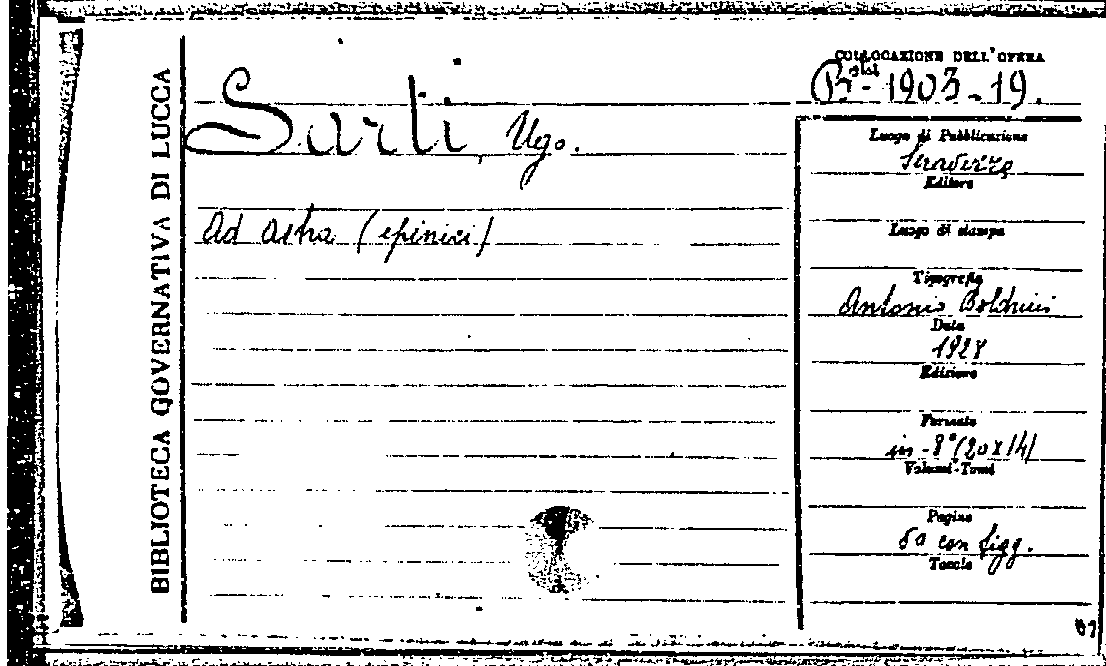 BIBLIOTECA GOVERNATIVA DI LUCCA
COLLOCAZIONE DELL'OPERA
Bᵃ ᵗᵃ - 1903 - 19.
Sarti, Ugo.
Ad astra (epinici)
Luogo di Pubblicazione
Seravezza
Editore
Luogo di stampa
Tipografia
Antonio Boldrini
Data
1928
Edizione
Formato
in-8° (20 x 14)
Volumi-Tomi
Pagine
50 con figg.
Tavole